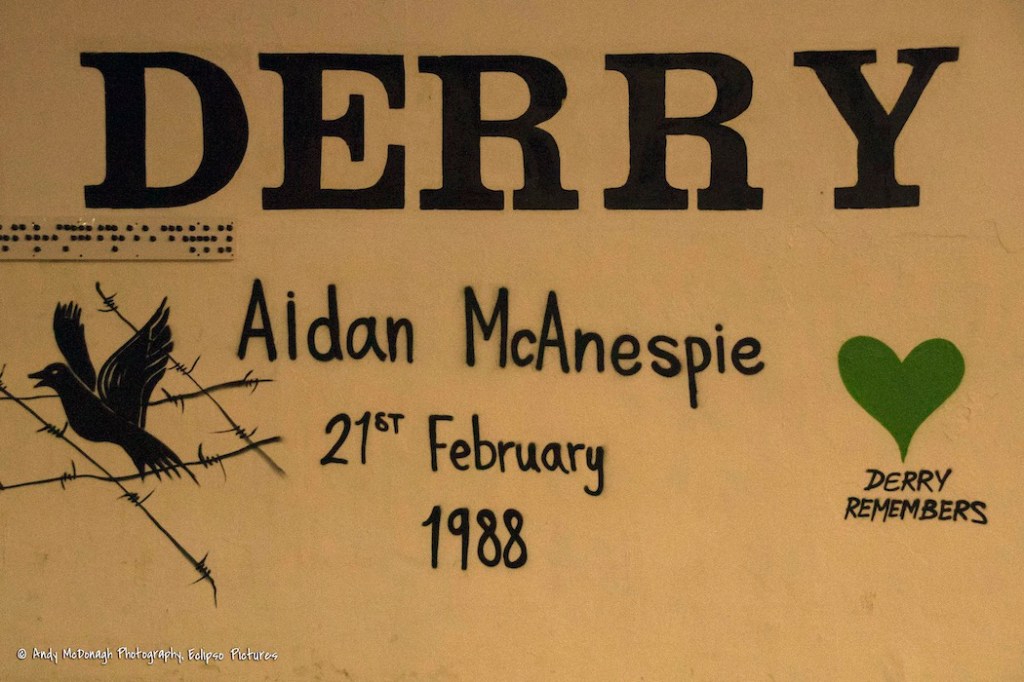 DERRY
Aidan McAnespie
21ST February
1988
DERRY
REMEMBERS
© Andy McDonagh Photography, Eclipso Pictures